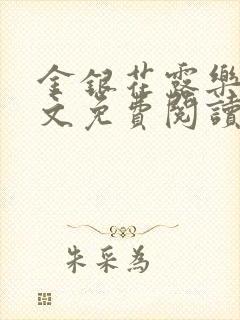 金銀花露樂
文免費閱讀
朱采為